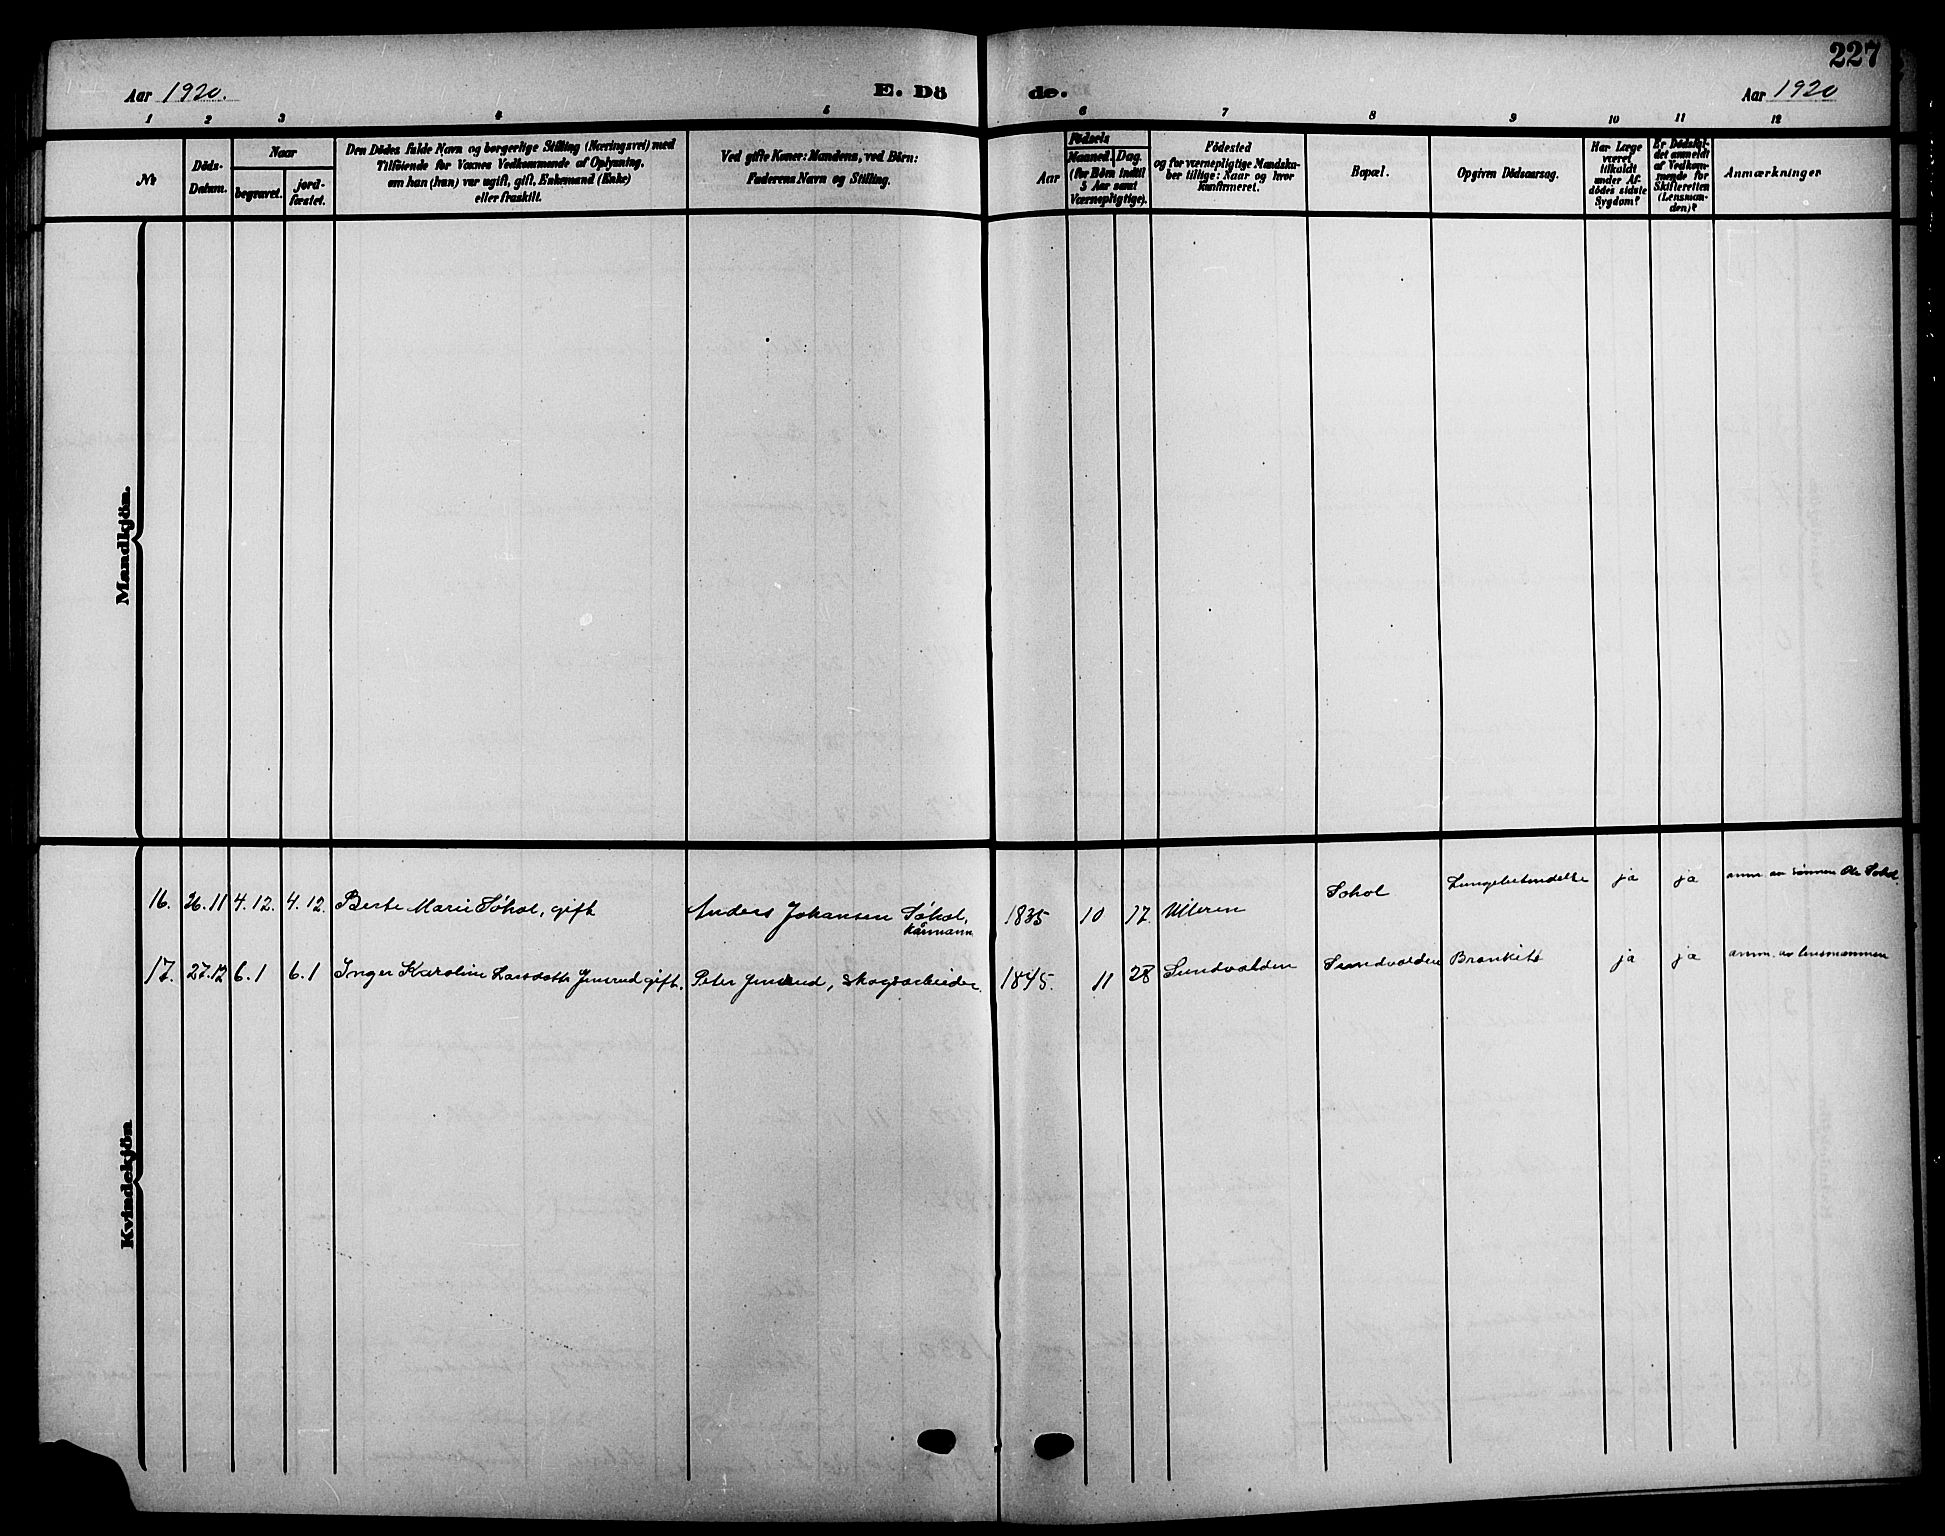 227
Aar 1920. E. Dö de. Aar 1920
1 2 3 4 5 6 7 8 9 10 11 12
No
Döds-
Datum.
Naar
begravet.
jord-
fæstet.
Den Dödes fulde Navn og borgerlige Stilling (Næringsvei) med
Tilföiende for Voxnes Vedkommende af Oplysning,
om han (hun) var ugift, gift, Enkemand (Enke)
eller fraskilt.
Ved gifte Koner: Mandens, ved Börn:
Faderens Navn og Stilling.
Födsels
Aar
Maaned. Dag.
(for Börn indtil
5 Aar samt
Værnepligtige).
Födested
og for værnepligtige Mandska-
ber tillige: Naar og hvor
konfirmeret.
Bopæl.
Opgiven Dödsaarsag.
Har Læge
været
tilkaldt
under Af-
dödes sidste
Sygdom?
Er Dödsfal-
det anmeldt
af Vedkom-
mende for
Skifteretten
(Lensman-
den)?
Anmærkninger
Mandkjön.
Kvindekjön
16. 26.11 4.12. 4.12. Berte Marie Søhol, gift Anders Johansen Søhol, 1835 10 17. Ulleren Sohol Lungebetendelse ja ja anm. av sønnen Ole Søhol.
kårmann.
17. 27.12 6.1 6.1 Inger Karoline Larsdatter gift. Peter skogsarbeider. 1845. 11 28 Sundvolden Sundvolden Bronkite ja ja anm. av lensmannen